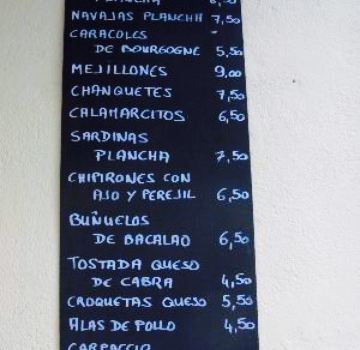 PLANCHA 6,50
NAVAJAS PLANCHA 7,50
CARACOLES -
DE BOURGOGNE 5,50
MEJILLONES 9,00
CHANQUETES 7,50
CALAMARCITOS 6,50
SARDINAS
PLANCHA 7,50
CHIPIRONES CON
AJO Y PEREJIL 6,50
BUÑUELOS
DE BACALAO 6,50
TOSTADA QUESO
DE CABRA 4,50
CROQUETAS QUESO 5,50
ALAS DE POLLO 4,50
CARPACCIO